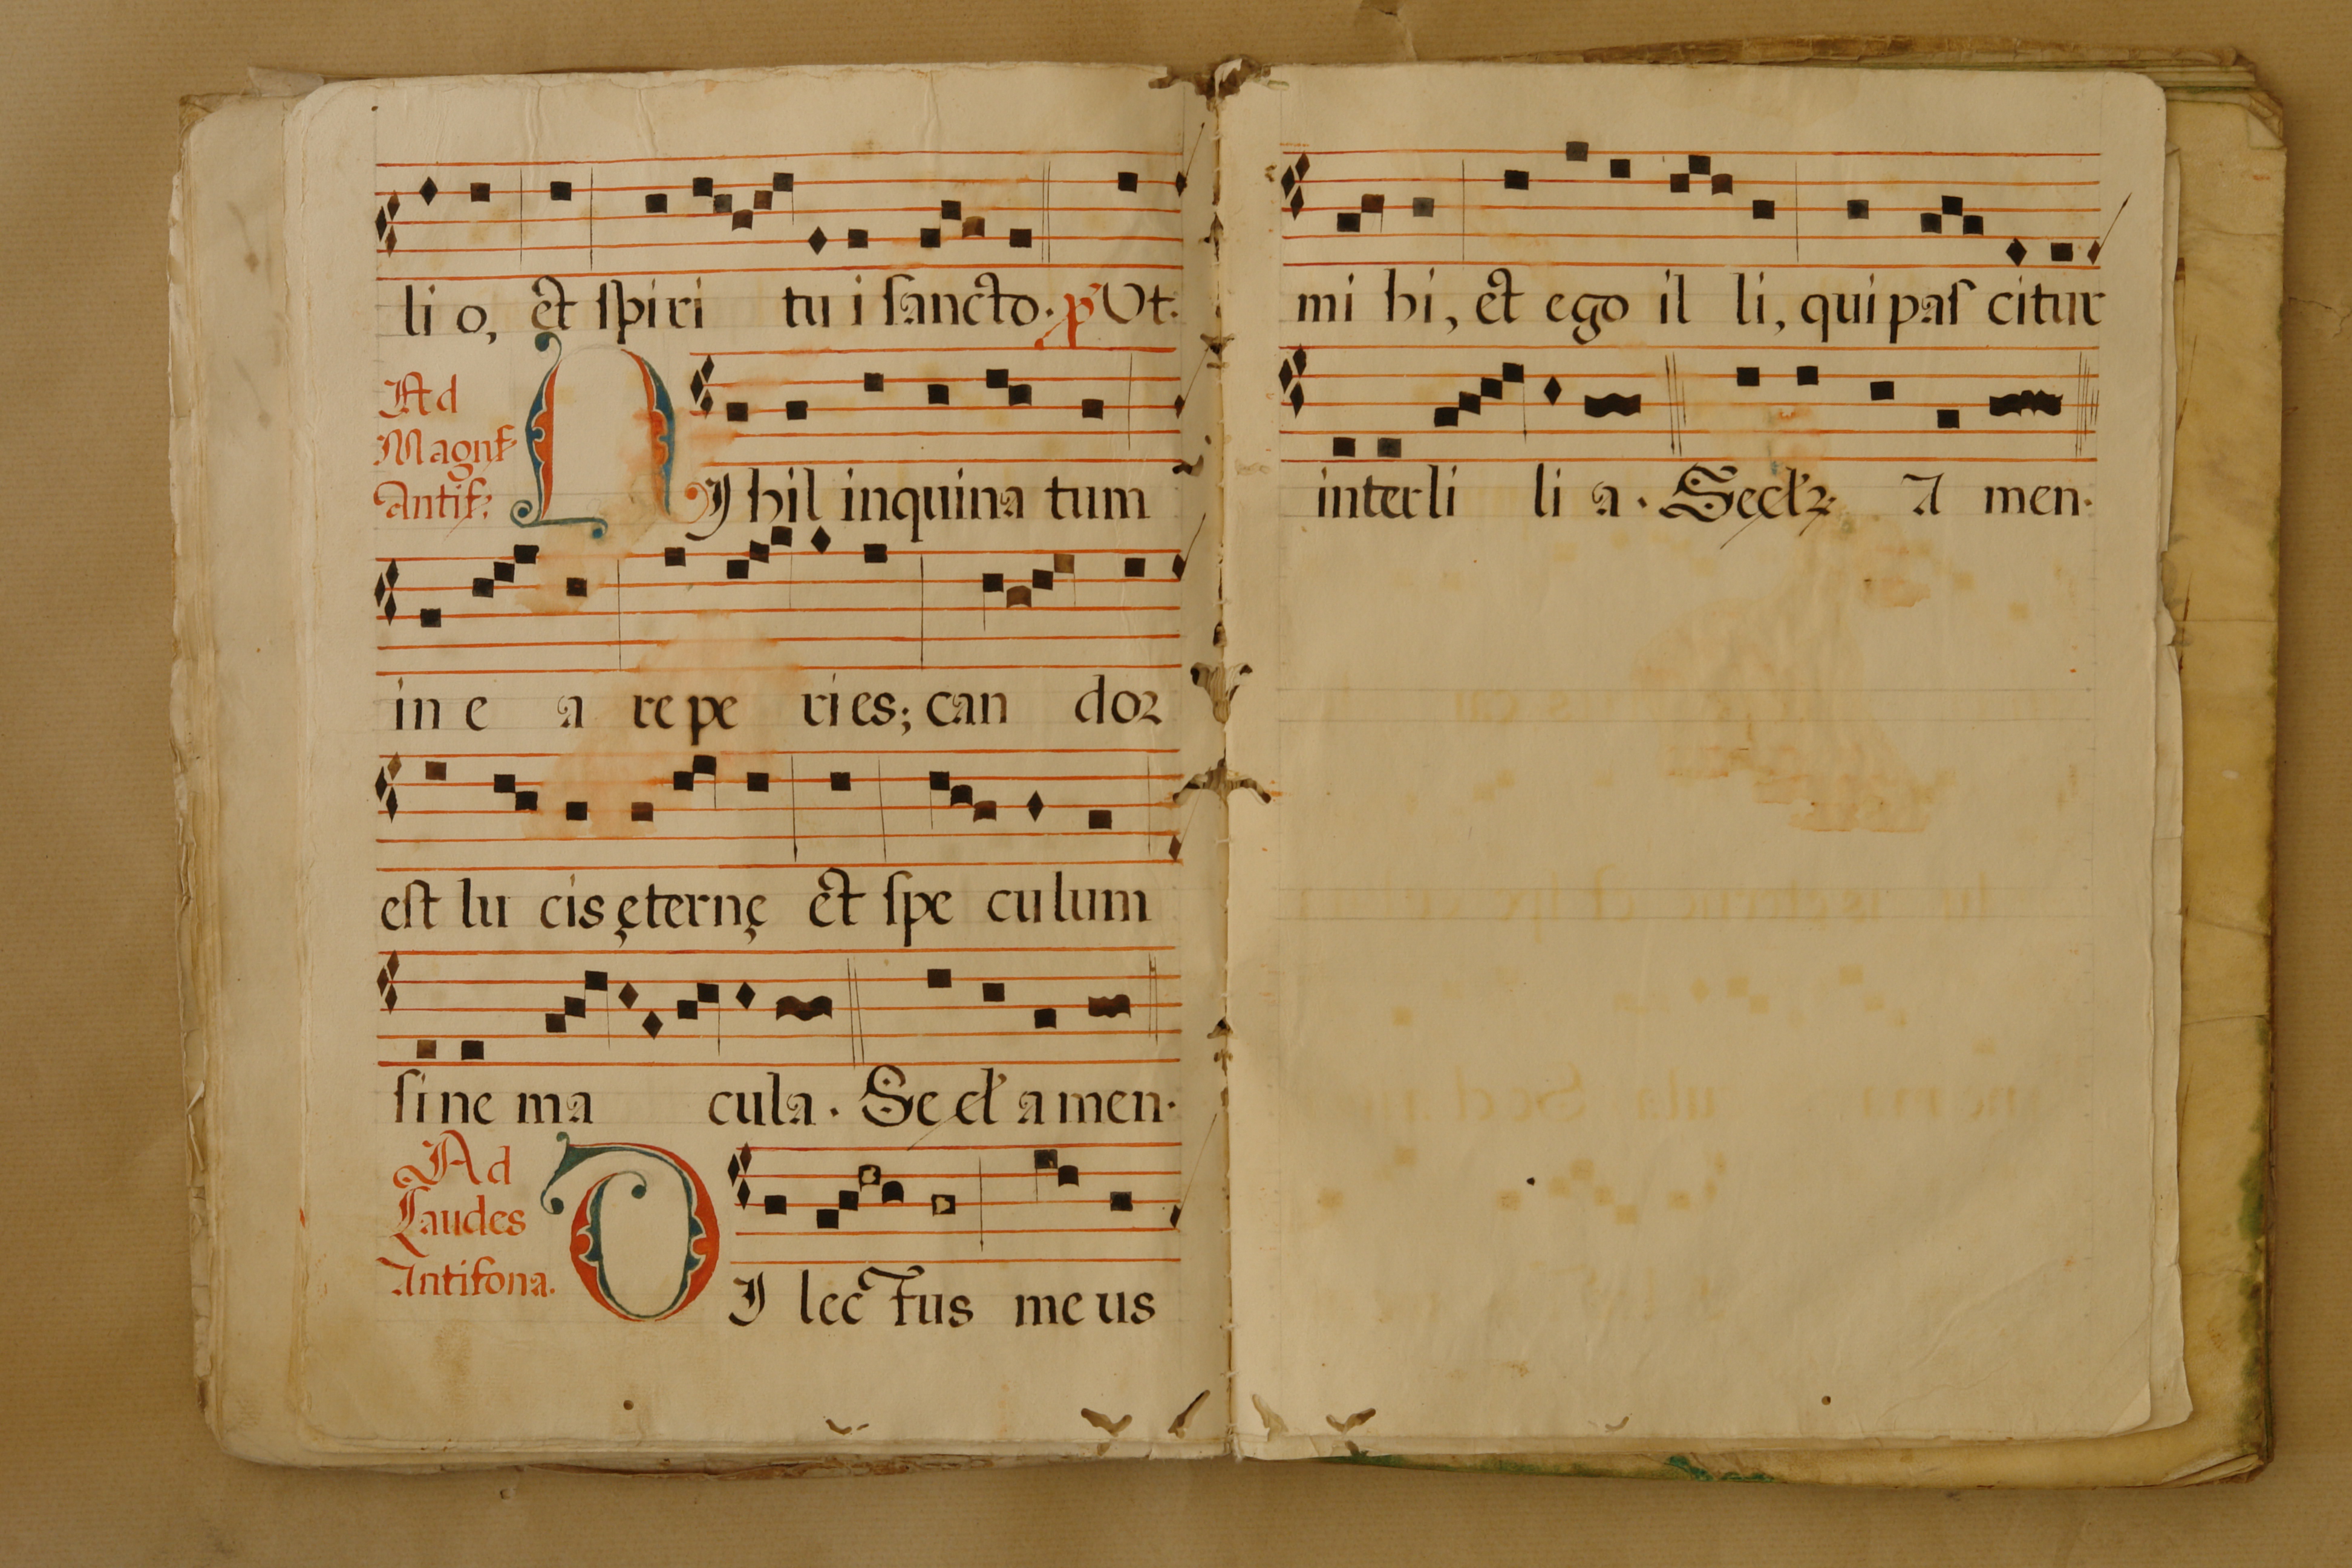 li o, et ſpiri tu i ſancto. p Ut.
Ad
Magnf.
Antif.
NJ hil inquina tum
in e a re pe ri es; can doꝛ
est lu cis ęternę et ſpe culum
ſi ne ma cula. Secl' a men.
Ad
Laudes
Antifona.
DI lectus me us
mi hi, et ego il li, qui paſ citur
inter li li a. Secl'ꝛ. A men.